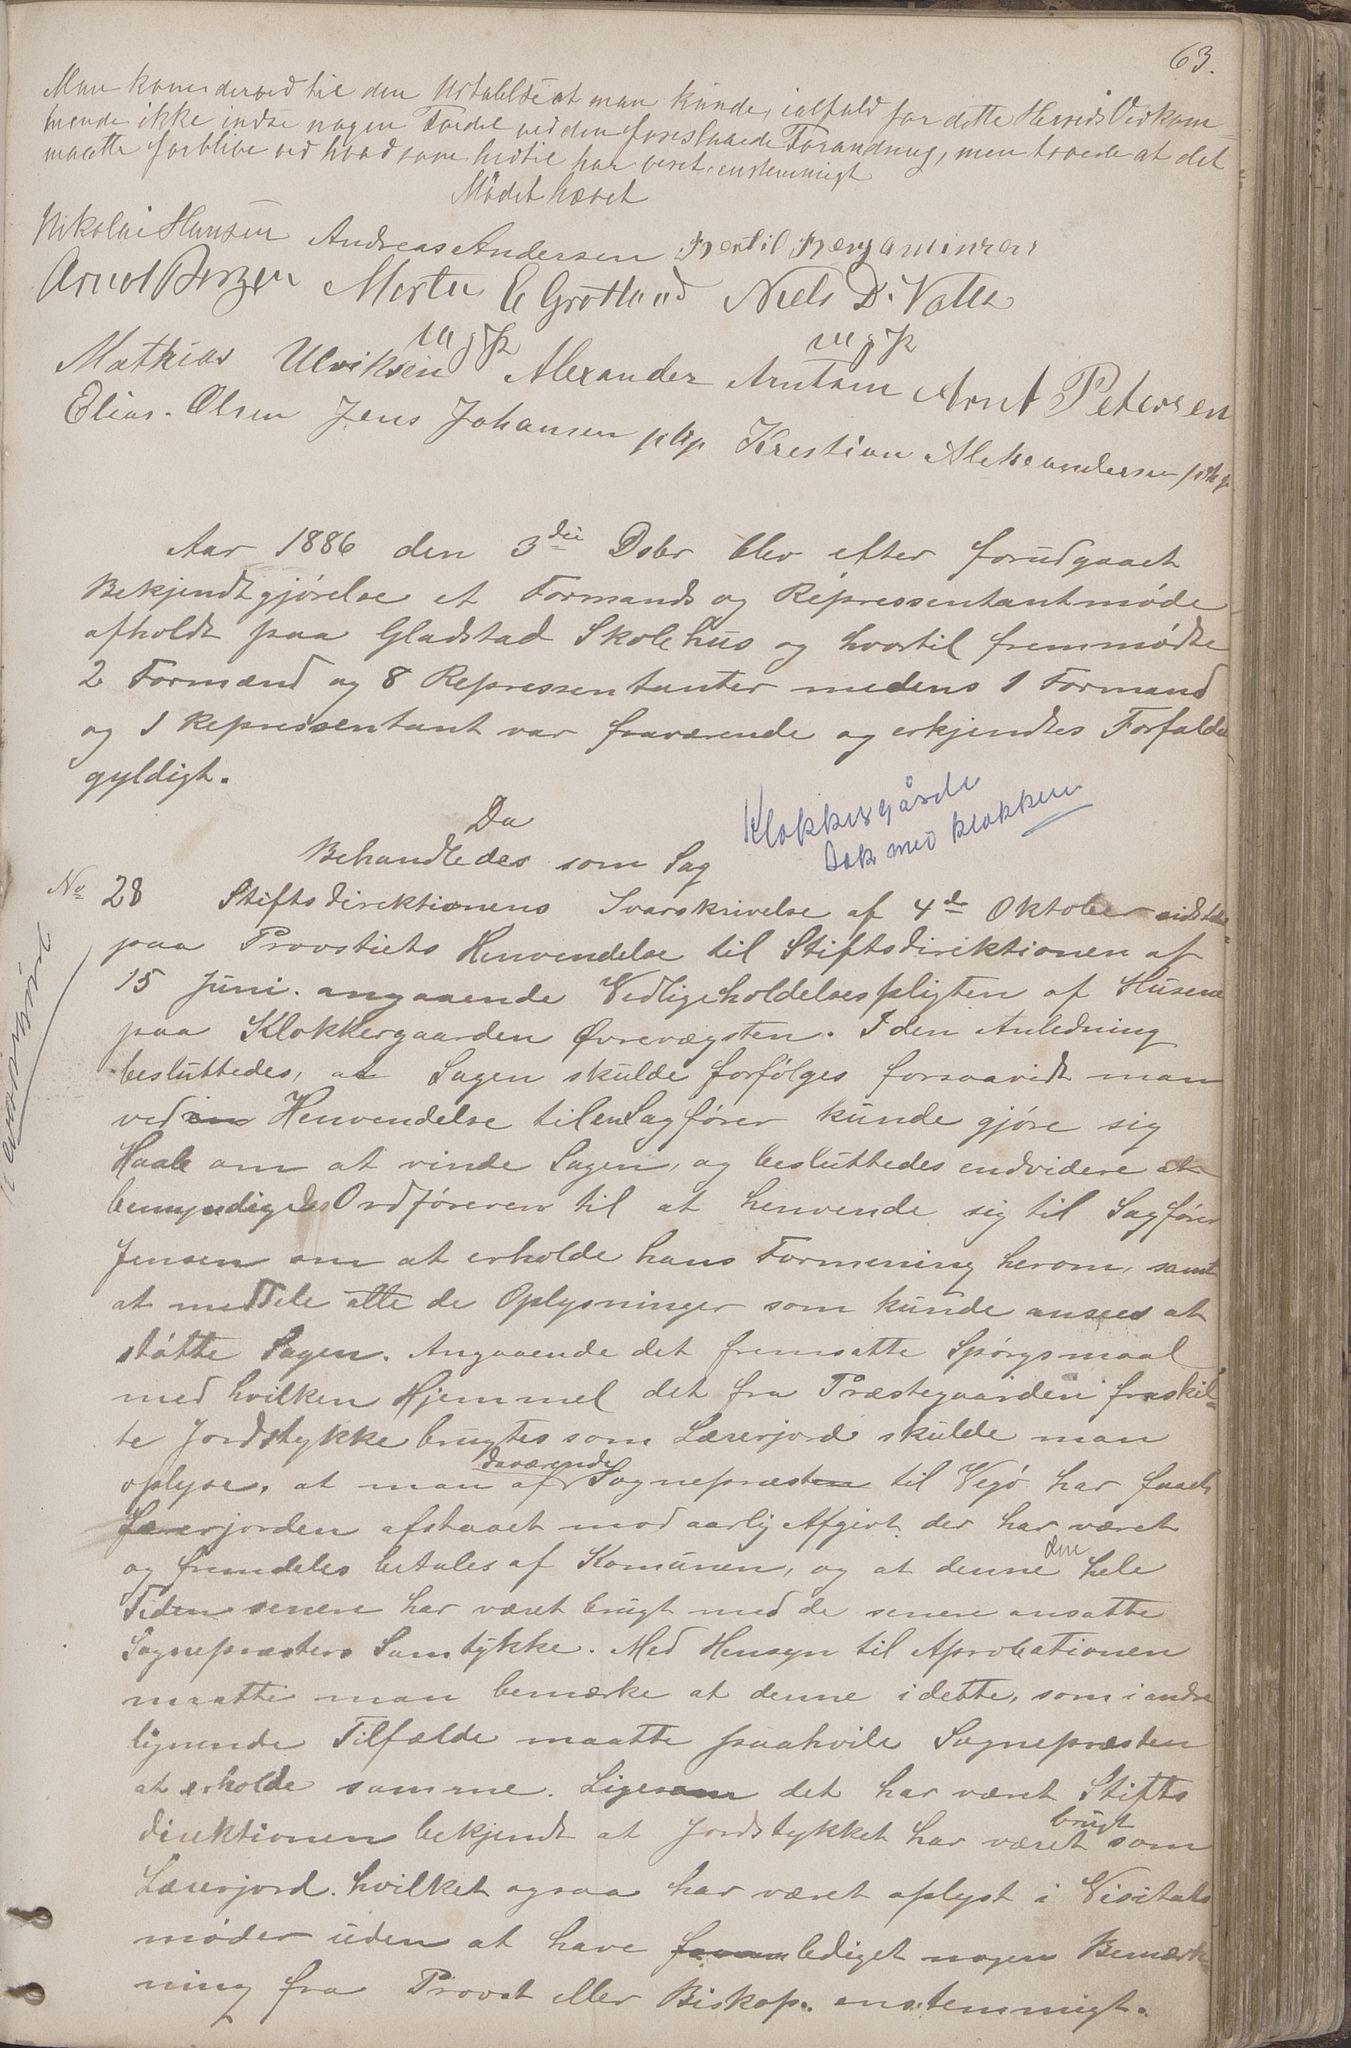 63.
Man kom derved til den Udtalelse at man kunde, ialfald for dette Herreds Vedkom-
mende ikke indse nogen Fordel ved den foreslaaede Forandring, men troede at det
maatte forblive ved hvad som hidtil har veret, enstemmigt
Mødet hævet
Nikolai Hansen Andreas Andersen Bertil Benjaminsen
Arnot Morten E Grotland Niels D. Valla
m g P m g P
Mathias Ulriksen Alexander Arntsen Arnt Petersen
Elias Olsen Jens Johansen p h p Krestian Aleksandersen p h p
Aar 1886 den 3die Dsbr blev efter forudgaaet
Bekjendtgjørelse et Formands og Repressentantmøde
afholdt paa Gladstad Skolehus og hvortil fremmødte
2 Formænd og 8 Repressentanter medens 1 Formand
og 1 Repressentant var fraværende og erkjendtes Forfaldet
gyldigt.
Klokkergårde
Sak med klokkeren
Da
Behandledes som Sag
No 28 Stiftsdirektionens Svarskrivelse af 4de Oktober sidstl.
paa Provstiets Henvendelse til Stiftsdirektionen af
15 Juni. angaaende Vedligeholdelsespligten af Husene
paa Klokkergaarden Øvrevægsten. I den Anledning
besluttedes, at Sagen skulde forfølges forsaavidt man
ved en Henvendelse til en Sagfører kunde gjøre sig
Haab om at vinde Sagen, og besluttedes endvidere at
bemyndiges Ordføreren til at henvende sig til Sagfører
Jensen om at erholde hans Formening herom, samt
at meddele alle de Oplysninger som kunde ansees at
støtte Sagen. Angaaende det fremsatte Spørgsmaal
med hvilken Hjemmel det fra Præstegaarden fraskil-
te Jordstykke brugtes som Lærerjord skulde man
oplyse, at man af daværende Sognepræsten til Vegø har faaet
Lærerjorden afstaaet mod aarlig Afgivt der har været
og fremdeles betales af Komunen, og at denne den hele
Tiden senere har været brugt med de senere ansatte
Sognepræsters Samtykke. Med Hensyn til Aprobationen
maatte man bemærke at denne i dette, som i andre
lignende Tilfælde maatte paahvile Sognepræsten
at erholde samme. Ligesom det har været Stifts
direktionen bekjendt at Jordstykket har været brugt som
Lærerjord. hvilket ogsaa har været oplyst i Visitats
møder uden at have lediget nogen Bemærk-
ning fra Provst eller Biskop. enstemmigt.